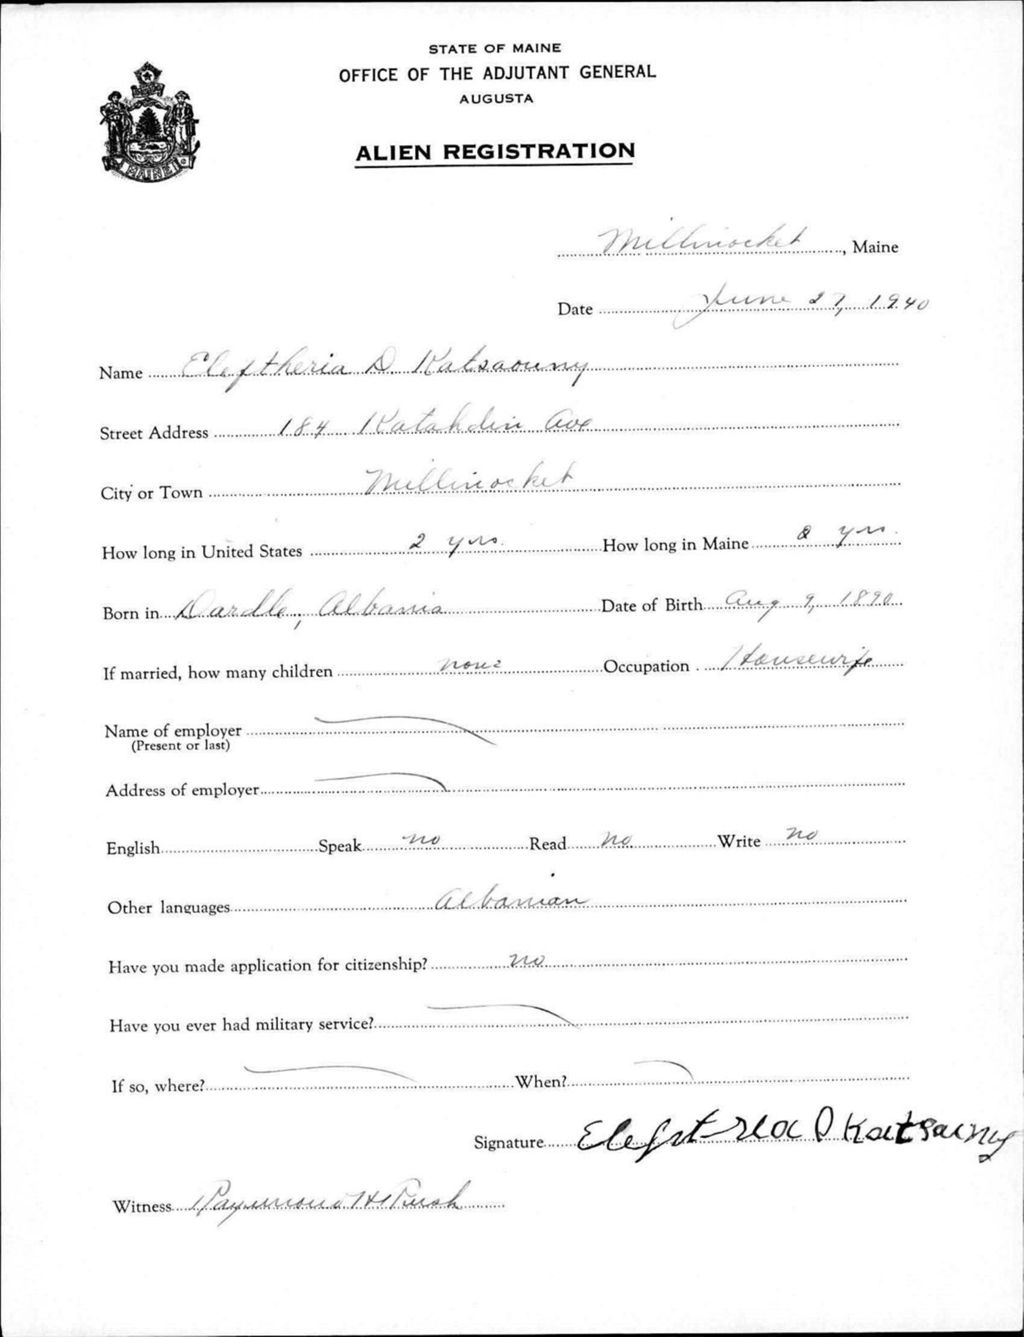 STATE OF MAINE
OFFICE OF THE ADJUTANT GENERAL
AUGUSTA
ALIEN REGISTRATION
MAINE
Millinocket, Maine
Date June 27, 1940
Name Eleftheria D. Katsaouny
Street Address 184 Katahdin Ave
City or Town Millinocket
How long in United States 2 yrs. How long in Maine 2 yrs.
Born in Dardle, Albania Date of Birth Aug 9, 1890
If married, how many children none Occupation Housewife
Name of employer
(Present or last)
Address of employer
English Speak no Read no Write no
Other languages Albanian
Have you made application for citizenship? no
Have you ever had military service?
If so, where? When?
Signature D Katsauny
Witness Raymond H Rush